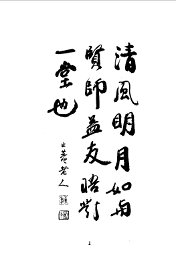 清風明月如與
賢師益友晤對
一堂也
老人